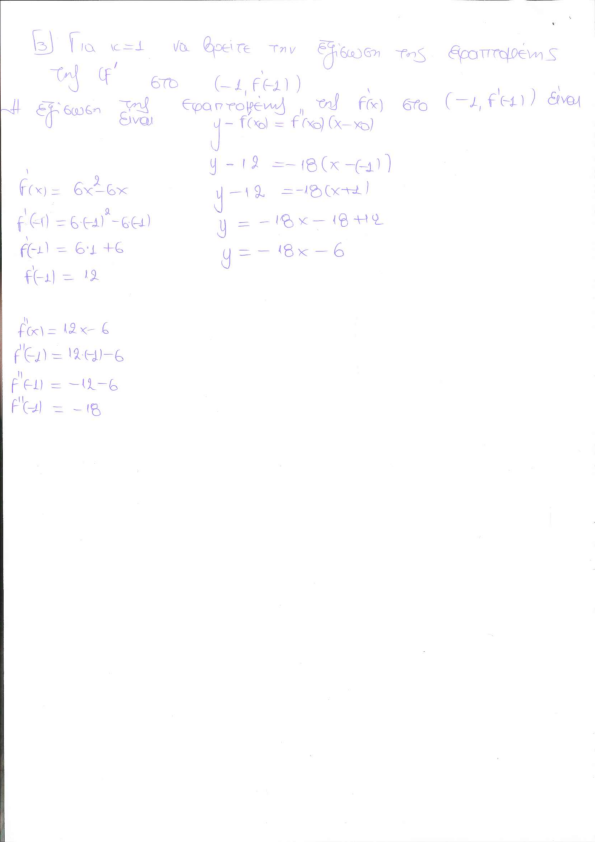 3) Για κ=1 να βρείτε την εξίσωση της εφαπτομένης
της Cf' στο (-1, f'(-1))
Η εξίσωση της εφαπτομένης της f'(x) στο (-1, f'(-1)) είναι
είναι
y-f'(x0) = f''(x0)(x-x0)
y-12 =-18(x-(-1))
y-12 =-18(x+1)
y = -18x-18+12
y = -18x-6
f'(x) = 6x²-6x
f'(-1) = 6·(-1)²-6(-1)
f'(-1) = 6·1+6
f'(-1) = 12
f''(x) = 12x-6
f''(-1) = 12·(-1)-6
f''(-1) = -12-6
f''(-1) = -18